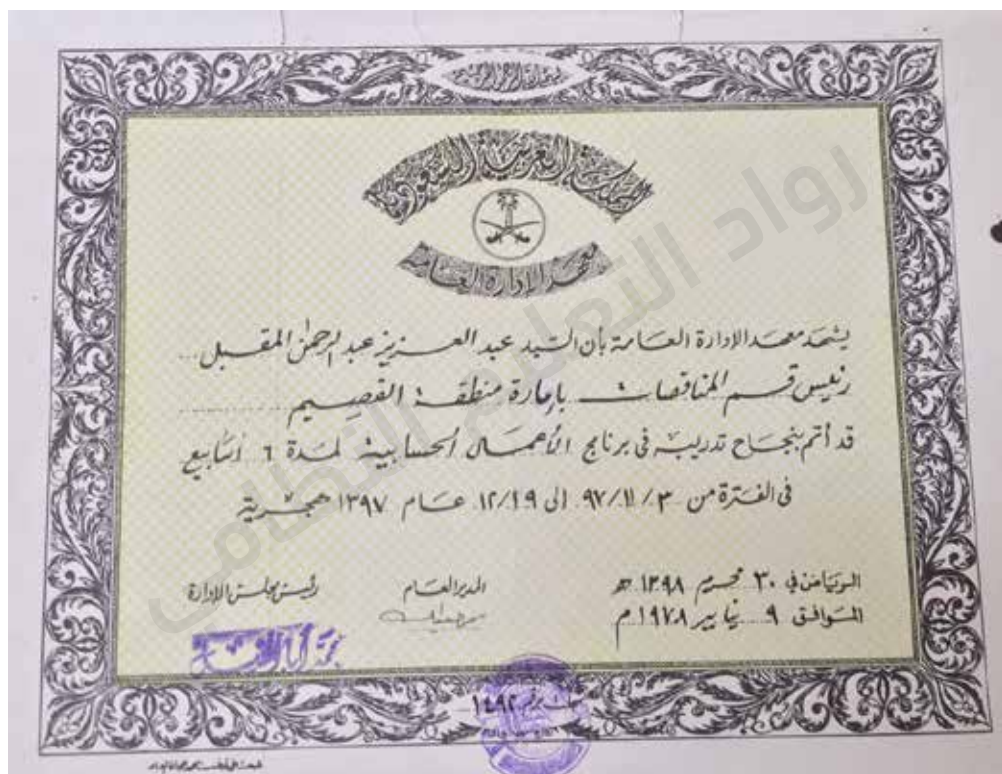 بسم الله الرحمن الرحيم
المملكة العربية السعودية
معهد الإدارة العامة
يشهد معهد الادارة العامة بأن السيد عبد العزيز عبد الرحمن المقبل
رئيس قسم المناقصات بإمارة منطقة القصيم
قد أتم بنجاح تدريبه في برنامج الأعمال الحسابية لمدة ٦ أسابيع
في الفترة من ٩٧/١١/٣ إلى ١٢/١٩ عام ١٣٩٧ هجرية
الرياض في ٣٠ محرم ١٣٩٨ هـ
الموافق ٩ يناير ١٩٧٨ م
المدير العام
رئيس مجلس الإدارة
رقم ١٤٩٢
رواد التعليم النظامي